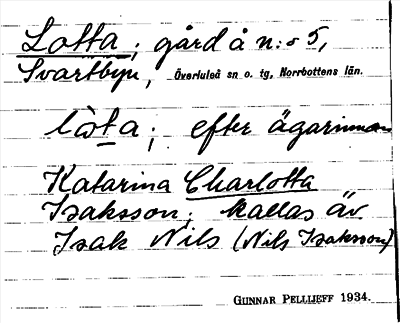 Lotta; gård å n:o 5,
Svartbyn, Överluleå sn o. tg, Norrbottens län.
lòsta; efter ägarinnan
Katarina Charlotta
Isaksson; kallas äv.
Isak Nils (Nils Isaksson)
GUNNAR PELLIJEFF 1934.